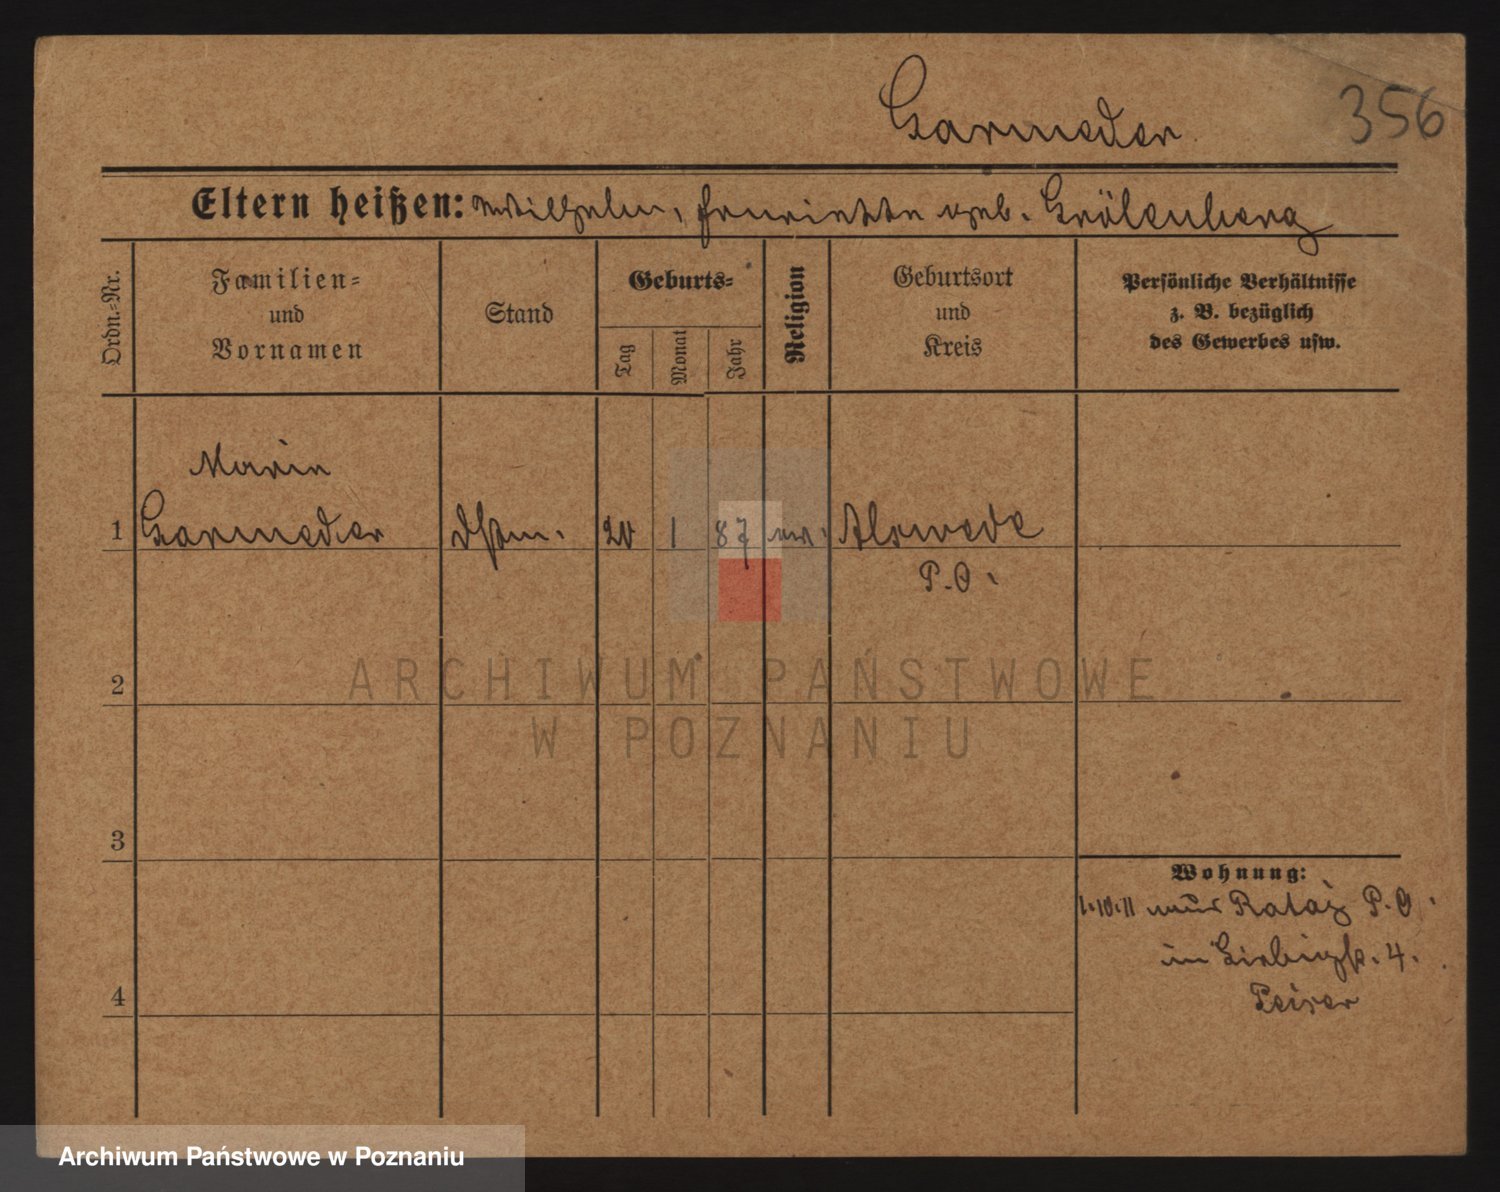 Garmeder
356
Eltern heißen: Wilhelm, Henriette geb. Grölenberg
Ordn.-Nr.
Familien-
und
Vornamen
Stand
Geburts-
Tag
Monat
Jahr
Religion
Geburtsort
und
Kreis
Persönliche Verhältnisse
z. B. bezüglich
des Gewerbes usw.
Marie
1 Garmeder 20 1 87 ev. Alswede
P.O.
2
3
4
Wohnung:
1.10.11 Rataj P.O.
4.
Peiser
ARCHIWUM PAŃSTWOWE
W POZNANIU
Archiwum Państwowe w Poznaniu